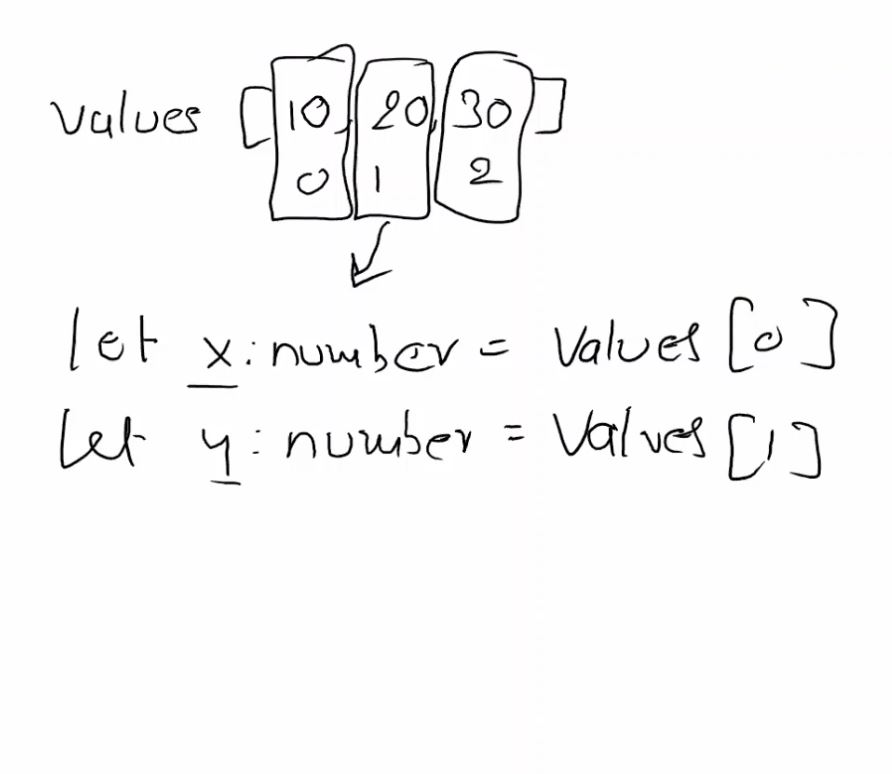 values [10, 20, 30]
0 1 2
let x: number = values [0]
let y: number = values [1]